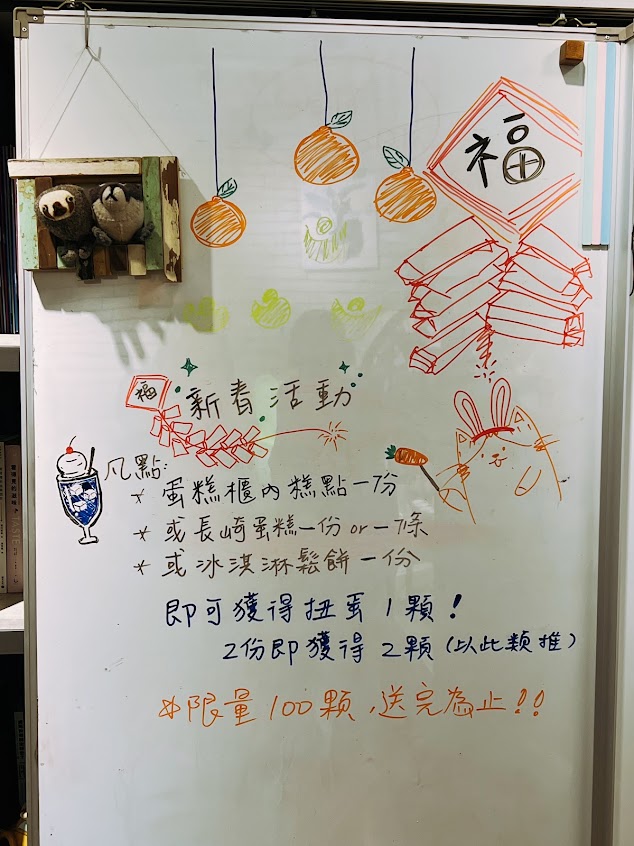 福
福
新春活動
凡點:
* 蛋糕櫃內糕點一份
* 或長崎蛋糕一份 or 一條
* 或冰淇淋鬆餅一份
即可獲得扭蛋1顆!
2份即獲得 2顆(以此類推)
*限量100顆,送完為止!!